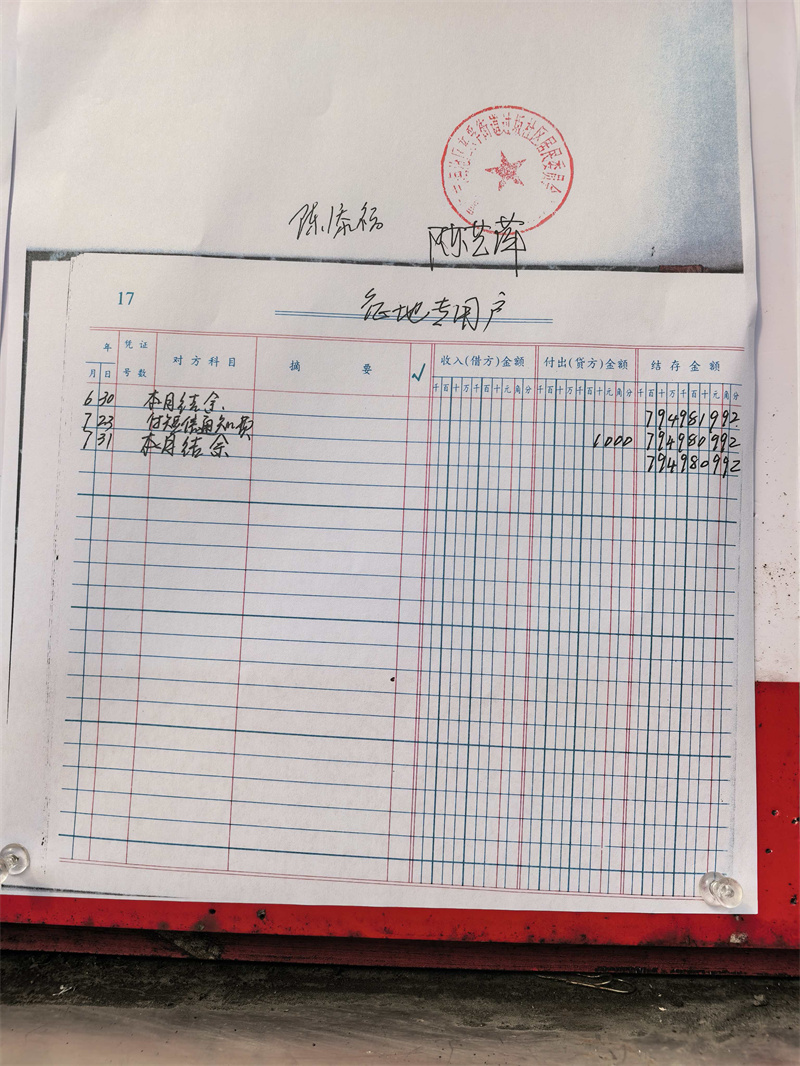 街道过坂社区居民委员会
陈添福
陈艺萍
17
征地专用户
年
凭证
对方科目
摘要
√
收入(借方)金额
付出(贷方)金额
结存金额
月 日
号数
千百十万千百十元角分
千百十万千百十元角分
千百十万千百十元角分
6 30 本月结余. 794981992
7 23 付短信通知费 1000 794980992
7 31 本月结余 794980992